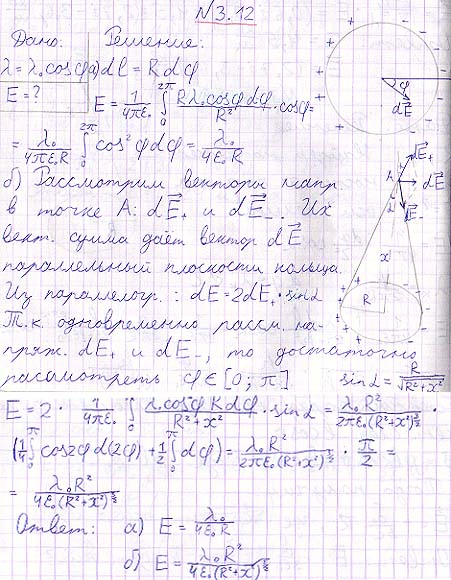 N 3.12
Дано: Решение:
λ = λ₀cosφ а) dl = R dφ
E = ?
E = 1/(4πε₀) ∫₀^{2π} (Rλ₀cosφ dφ)/R² · cosφ =
= λ₀/(4πε₀R) ∫₀^{2π} cos²φ dφ = λ₀/(4ε₀R)
φ
dE⃗
б) Рассмотрим векторы напр
в точке A: dE⃗₊ и dE⃗₋. Их
вект. сумма даёт вектор dE⃗
параллельный плоскости кольца.
Из параллелогр.: dE = 2dE₊ · sinα
Т.к. одновременно рассм. на-
пряж. dE₊ и dE₋, то достаточно
рассмотреть φ ∈ [0; π]
A
E⃗₊
dE⃗
E⃗₋
α
x
R
sinα = R/√(R²+x²)
E = 2 · 1/(4πε₀) ∫₀^π (λ₀cos²φ R dφ)/(R²+x²) · sinα = λ₀R²/(2πε₀(R²+x²)^{3/2}) ·
(1/4 ∫₀^π cos2φ d(2φ) + 1/2 ∫₀^π dφ) = λ₀R²/(2πε₀(R²+x²)^{3/2}) · π/2 =
= λ₀R²/(4ε₀(R²+x²)^{3/2})
Ответ: а) E = λ₀/(4ε₀R)
б) E = λ₀R²/(4ε₀(R²+x²)^{3/2})